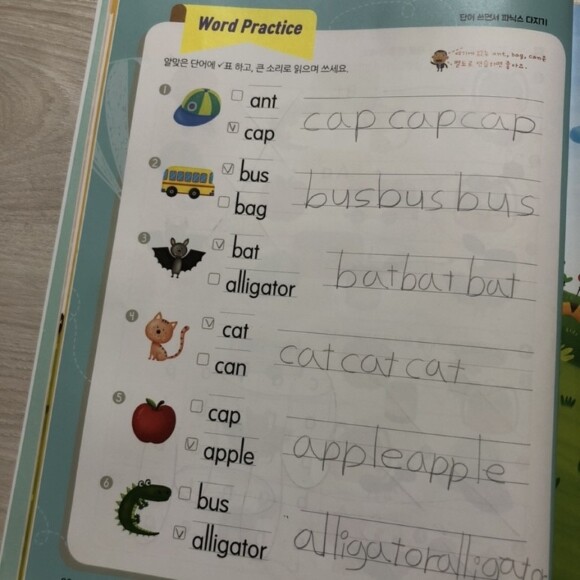 Word Practice
단어 쓰면서 파닉스 다지기
알맞은 단어에 ✓표 하고, 큰 소리로 읽으며 쓰세요.
1
ant
cap
cap cap cap
2
bus
bag
bus bus bus
3
bat
alligator
bat bat bat
4
cat
can
cat cat cat
5
cap
apple
apple apple
6
bus
alligator
alligator alligator